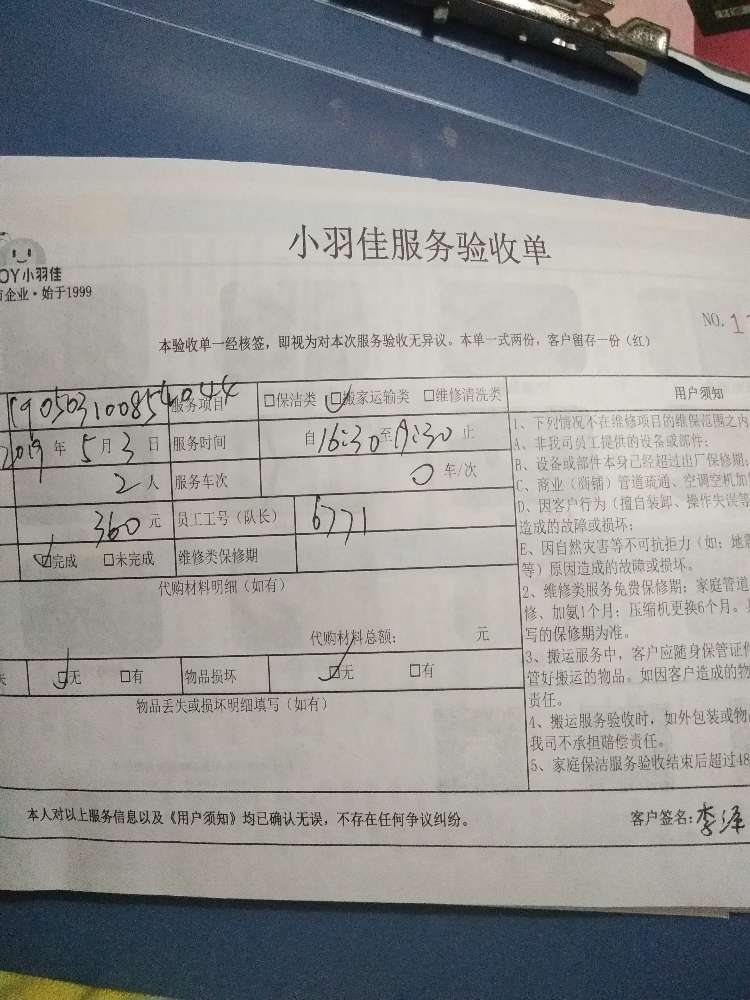 小羽佳服务验收单
OY小羽佳
企业·始于1999
NO. 1
本验收单一经核签，即视为对本次服务验收无异议。本单一式两份，客户留存一份（红）
服务项目 □保洁类 ☑搬家运输类 □维修清洗类
2019 年 5 月 3 日 服务时间 自 16:30 至 止
2 人 服务车次 0 车/次
360 元 员工工号（队长） 6771
☑完成 □未完成 维修类保修期
代购材料明细（如有）
代购材料总额： 元
☑无 □有 物品损坏 ☑无 □有
物品丢失或损坏明细填写（如有）
用户须知
1、下列情况不在维修项目的维保范围之内
A、非我司员工提供的设备或部件；
B、设备或部件本身已经超过出厂保修期；
C、商业（商铺）管道疏通、空调空机加
D、因客户行为（擅自装卸、操作失误等
造成的故障或损坏；
E、因自然灾害等不可抗拒力（如：地震
等）原因造成的故障或损坏。
2、维修类服务免费保修期：家庭管道
修、加氨1个月；压缩机更换6个月。
写的保修期为准。
3、搬运服务中，客户应随身保管证件
管好搬运的物品。如因客户造成的物
责任。
4、搬运服务验收时，如外包装或物
我司不承担赔偿责任。
5、家庭保洁服务验收结束后超过48
本人对以上服务信息以及《用户须知》均已确认无误，不存在任何争议纠纷。
客户签名：李泽